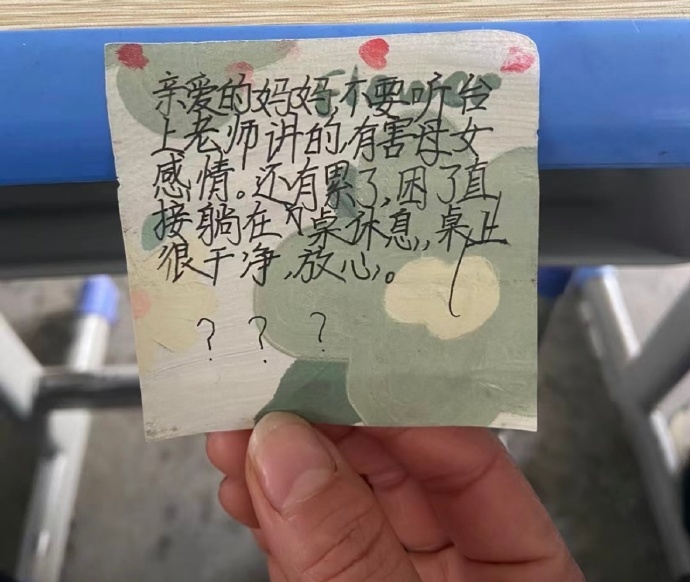 亲爱的妈妈,不要听台
上老师讲的,有害母女
感情。还有累了,困了直
接躺在桌休息,桌上
很干净,放心。
? ? ?